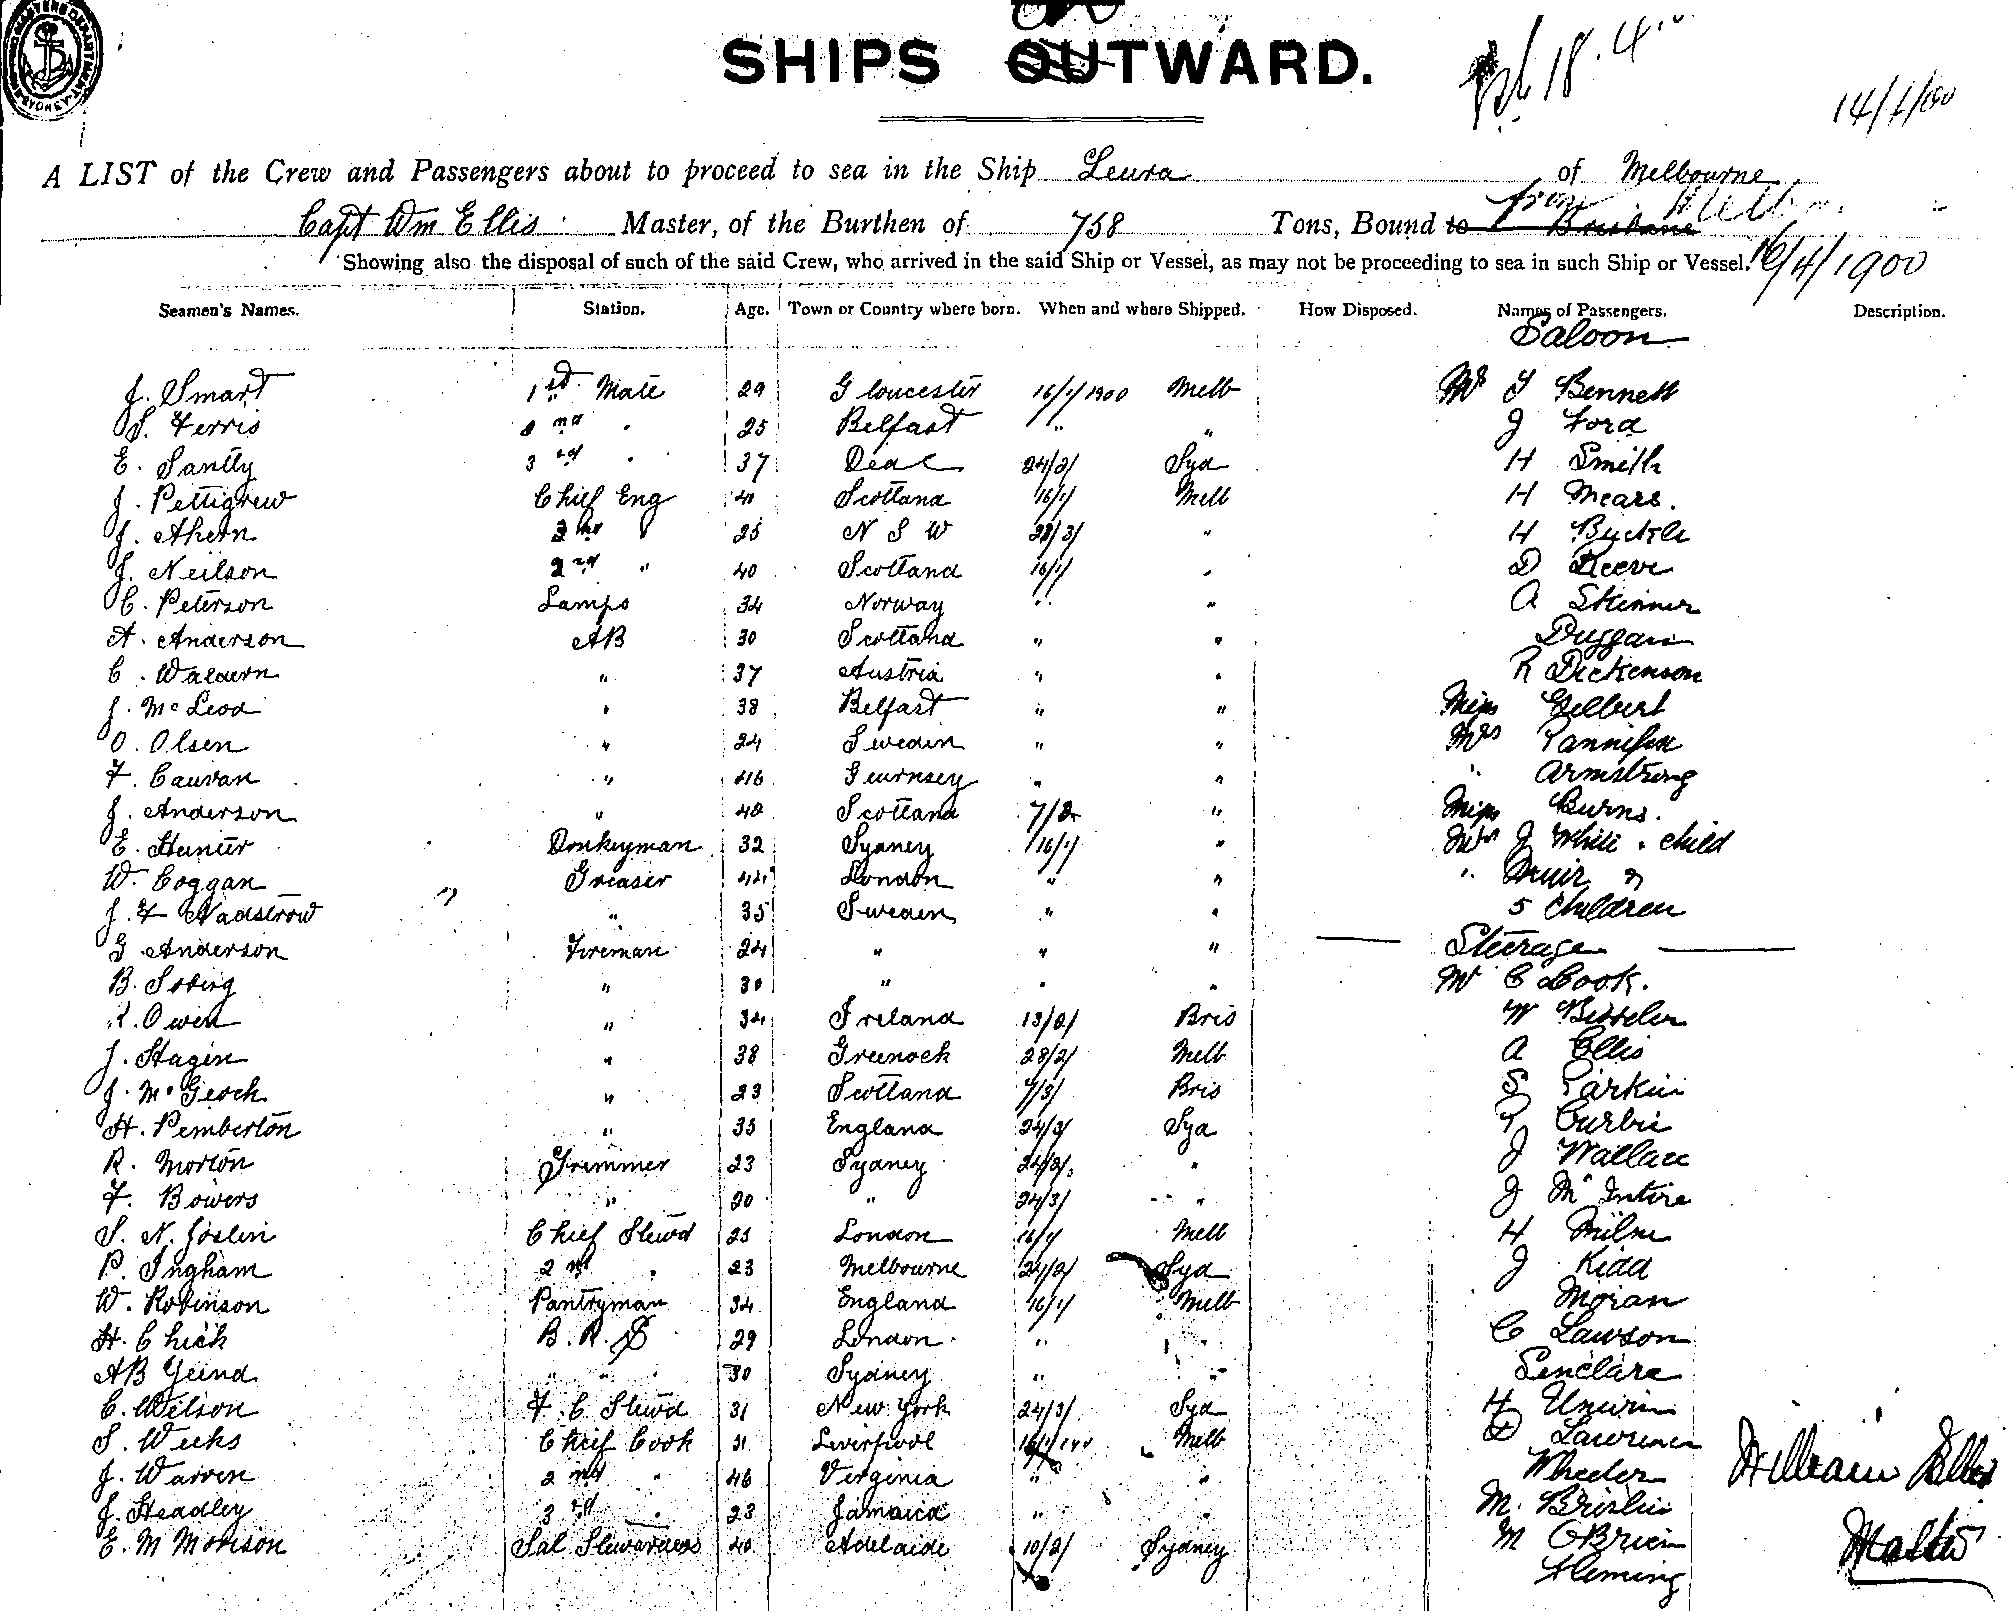 SHIPS OUTWARD.
18.4.
14/4/00
A LIST of the Crew and Passengers about to proceed to sea in the Ship Leura of Melbourne
Capt Wm Ellis Master, of the Burthen of 758 Tons, Bound to Brisbane from Melb
Showing also the disposal of such of the said Crew, who arrived in the said Ship or Vessel, as may not be proceeding to sea in such Ship or Vessel. 16/4/1900
Seamen's Names. Station. Age. Town or Country where born. When and where Shipped. How Disposed. Names of Passengers. Description.
Saloon
J. Smart 1st Mate 29 Gloucester 16/1/1900 Melb Mr J Bennett
S. Ferris 2nd " 25 Belfast " " J Ford
E. Santly 3rd " 37 Deal 24/2/ Syd H Smith
J. Pettigrew Chief Eng 40 Scotland 16/1/ Melb H Mears.
J. Ahern 25 N S W 28/3/ " H Buckle
J. Neilson 2nd " 40 Scotland 16/1/ " D Reeve
C. Peterson Lamps 34 Norway " " A Skinner
A. Anderson AB 30 Scotland " " Duggan
C. Waldern " 37 Austria " " R Dickenson
J. McLeod " 38 Belfast " " Miss Gilbert
O. Olsen " 24 Sweden " " Mrs
F. Cauvan " 46 Guernsey " " " Armstrong
J. Anderson " 40 Scotland 7/2 " Miss Burns.
E. Hunter Donkeyman 32 Sydney 16/1/ " Mrs J White & child
W. Coggan Greaser 44 London " " " Muir &
J. F Wadstrow " 35 Sweden " " 5 Children
G Anderson Fireman 24 " " " Steerage
B. Soberg " 30 " " " Mr C Cook.
R. Owen " 34 Ireland 13/2/ Bris W
J. Hagen " 38 Greenock 28/2/ Melb A Ellis
J. McGeoch " 23 Scotland 7/3/ Bris S Parkin
H. Pemberton " 35 England 24/3/ Syd Curbie
R. Morton Trimmer 23 Sydney 24/2/ " J Wallace
F. Bowers " 20 " 24/3/ " J McIntire
S. N. Joslin Chief Stewd 25 London 16/1 Melb H Milne
P. Ingham 2nd " 23 Melbourne 24/2/ Syd J Kidd
W. Robinson Pantryman 34 England 16/1/ Melb Moran
H. Chick B. R. S 29 London " " C Lawson
AB Yeend " " 30 Sydney " " Senclare
C. Wilson F. C Stewd 31 New York 24/3/ Syd H Unwin
S. Weeks Chief Cook 31 Liverpool 16/1/ Melb D Lawrence
J. Warren 2nd " 46 Virginia " " Wheeler
J. Headley 3rd " 23 Jamaica " " M. Brislin
E. M Morison Sal Stewardess 40 Adelaide 10/2/ Sydney M OBrien
Fleming
William Ellis
Master